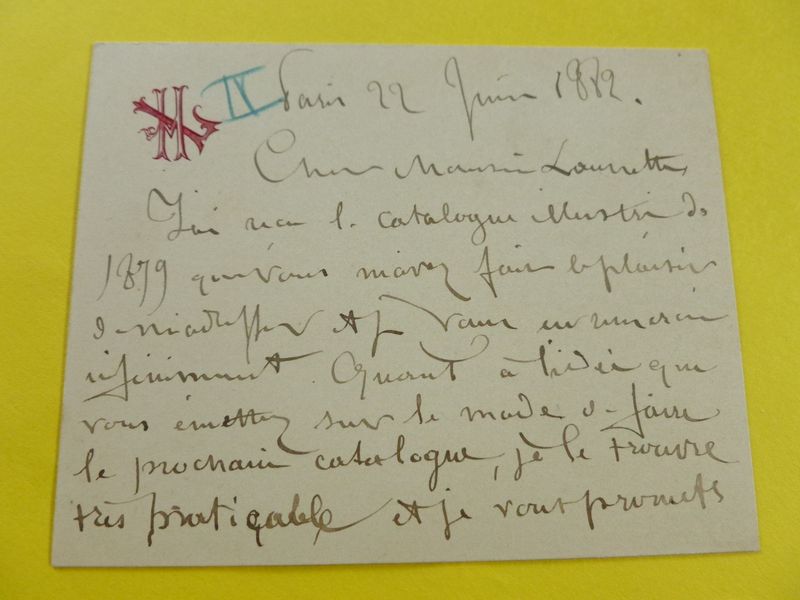 IX Paris 22 Juin 1882.
Cher Monsieur
J'ai reçu le catalogue illustré de
1879 que vous m'avez fait le plaisir
de m'adresser et je vous en remercie
infiniment. Quant à l'idée que
vous émettez sur le mode de faire
le prochain catalogue, je le trouve
très pratiquable et je vous promets